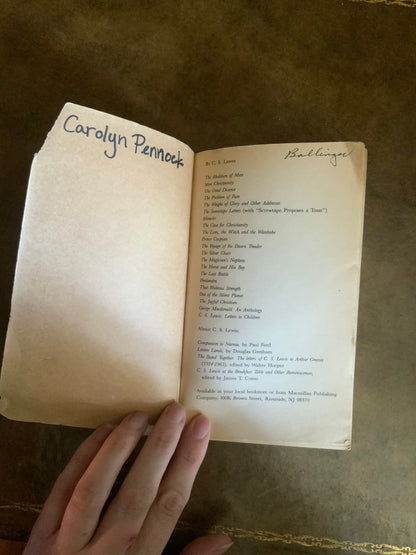 Carolyn Pennock
Ballinger
By C. S. Lewis
The Abolition of Man
Mere Christianity
The Great Divorce
The Problem of Pain
The Weight of Glory and Other Addresses
The Screwtape Letters (with "Screwtape Proposes a Toast")
Miracles
The Case for Christianity
The Lion, the Witch and the Wardrobe
Prince Caspian
The Voyage of the Dawn Treader
The Silver Chair
The Magician's Nephew
The Horse and His Boy
The Last Battle
Perelandra
That Hideous Strength
Out of the Silent Planet
The Joyful Christian
George Macdonald: An Anthology
C. S. Lewis: Letters to Children
About C. S. Lewis
Companion to Narnia, by Paul Ford
Lenten Lands, by Douglas Gresham
The Stand Together: The letters of C. S. Lewis to Arthur Greeves
(1914-1963), edited by Walter Hooper
C. S. Lewis at the Breakfast Table and Other Reminiscences,
edited by James T. Como
Available at your local bookstore or from Macmillan Publishing
Company, 100K Brown Street, Riverside, NJ 08370